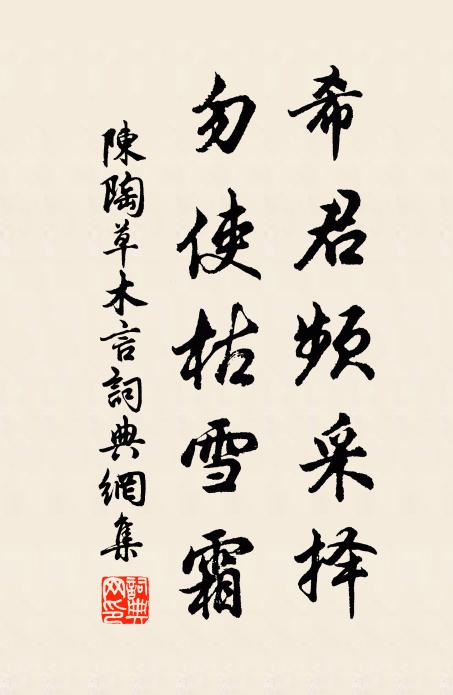 希君频采择
勿使枯雪霜
陳陶草木言詞典網集
詞典网印